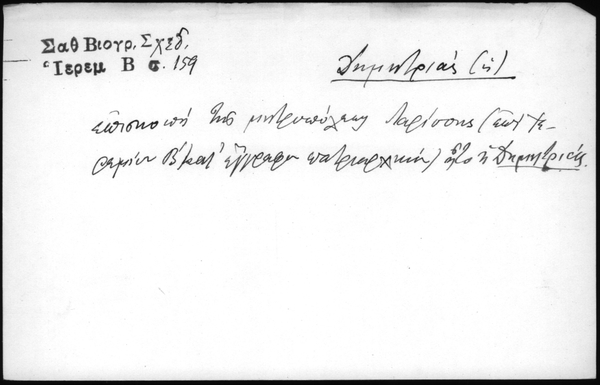 Σαθ Βιογρ. Σχεδ.
Ἱερεμ Β σ. 159
Δημητριάς (ἡ)
ἐπισκοπή τῆς μητροπόλεως Λαρίσσης (ἐπί Ἱε-
ρεμίου Β' κατ' ἔγγραφον πατριαρχικόν) ἦτο ἡ Δημητριάς.